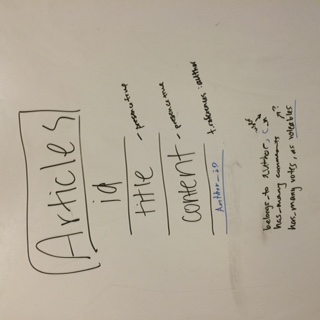 Articles
id
title - presence true
content - presence true
Author_id t.references :author
belongs_to author,
has_many comments
has_many votes, as voteables ?